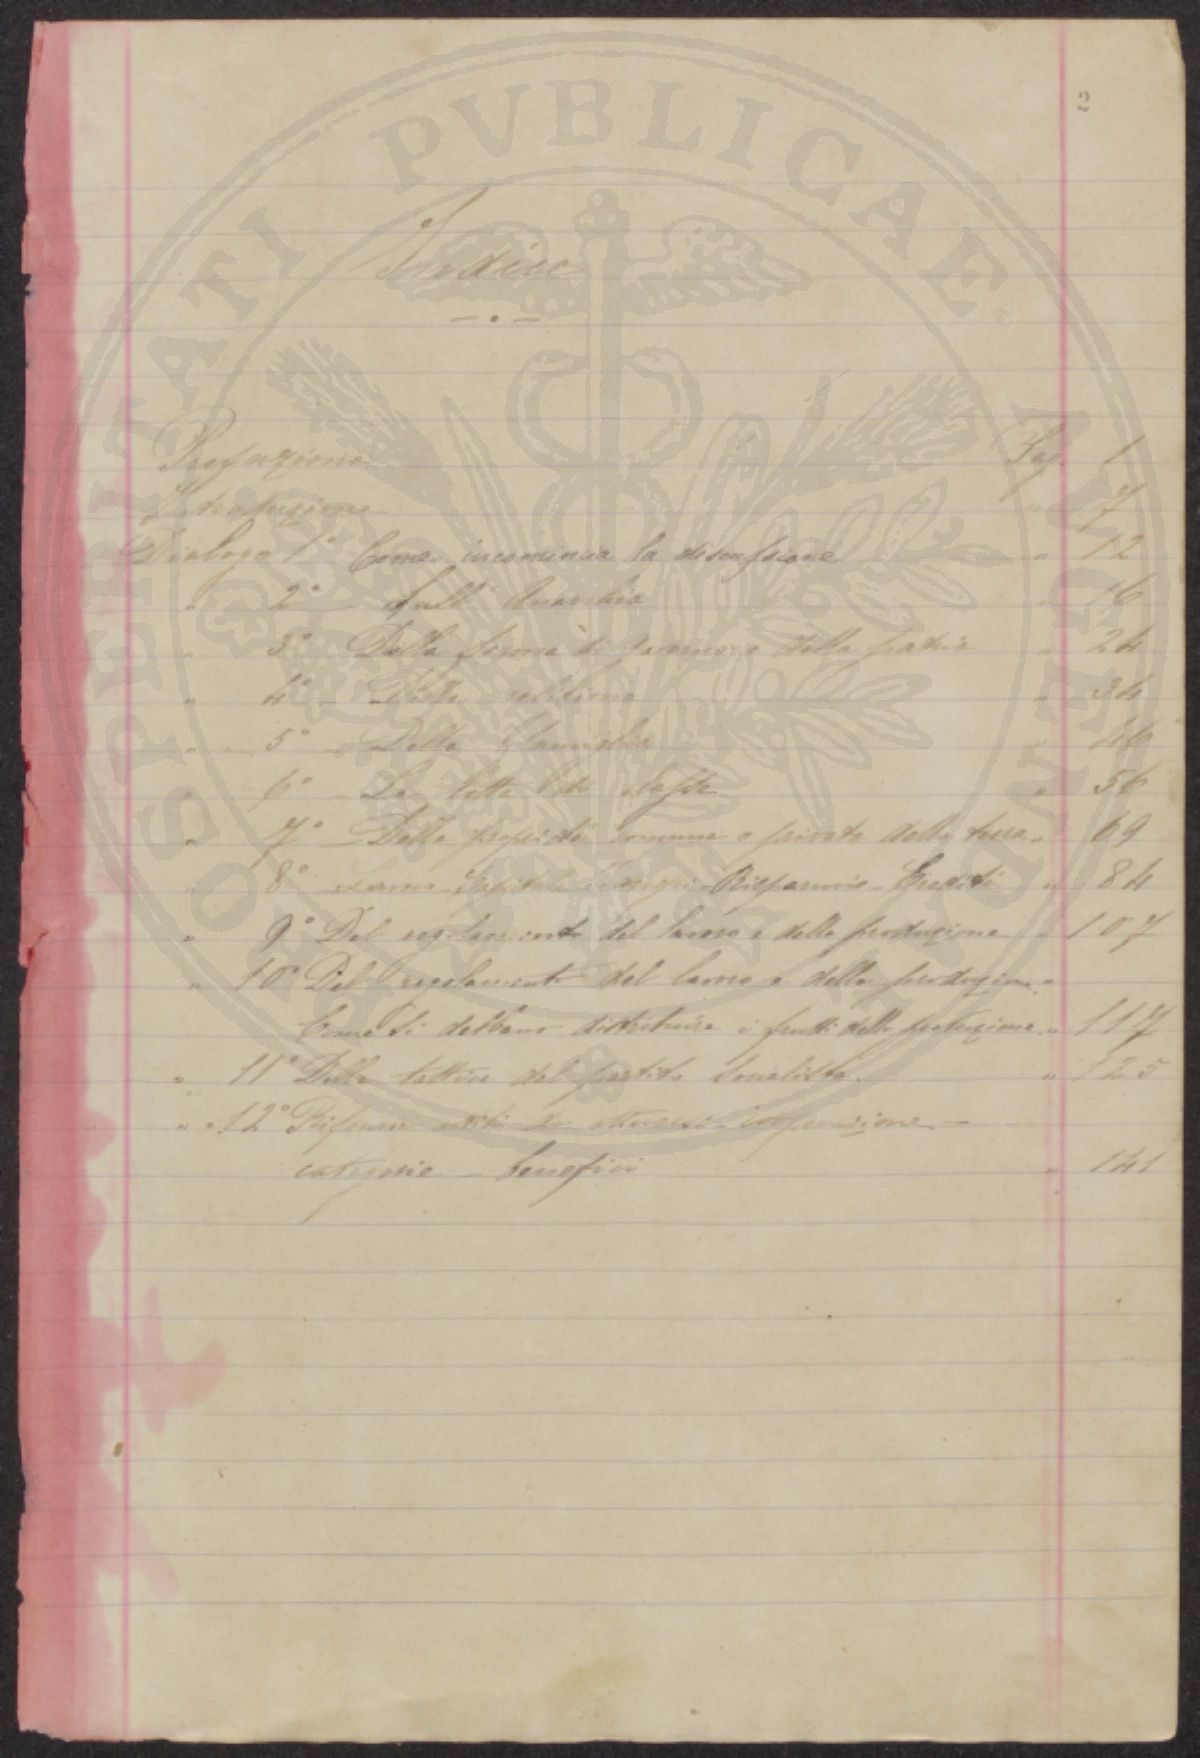 2
PROSPERITATI PUBLICAE AUGENDAE
Indice
Prefazione Pag. 1
Introduzione " 7
Dialogo 1° Come incomincia la discussione " 12
" 2° Sull' Anarchia " 16
" 3° Della forma di governo e della patria " 24
" 4° Della religione " 34
" 5° Della famiglia " 46
" 6° La lotta di classe " 56
" 7° Della proprietà comune o privata della terra " 69
" 8° Lavoro Capitale Risparmio Eredità " 84
" 9° Del regolamento del lavoro e della produzione " 107
" 10° Del regolamento del lavoro e della produzione "
Come si debbano distribuire i frutti della produzione " 117
" 11° Della tattica del partito Socialista. " 125
" 12° Riforme
categorie - benefici " 141